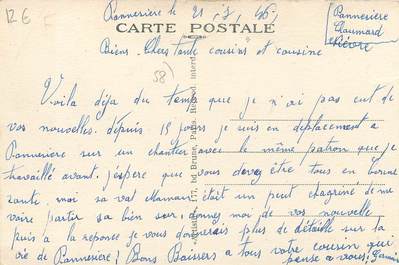 12 €
Panneciere le 21, 3, 46,
Panneciere
Chaumard
Nièvre
CARTE POSTALE
Biens Chers tante cousins et cousine
58)
Voila déja du temps que je n'ai pas eut de
vos nouvelles. depuis 15 jours je suis en déplacement a
Panneciere sur un chantier avec le même patron que je
travaillé avant. j'espère que vous devez être tous en bonne
santé. moi sa va! Maman était un peut chagriné de me
voire partir sa bien sur! donnez moi de vos nouvelle
puis a la reponse je vous donnerais plus de détaille sur la
vie de Panneciere! Bons Baisers a tous votre cousin qui
pense a vous!
177, bd Brune, Paris. Reprod. interdite